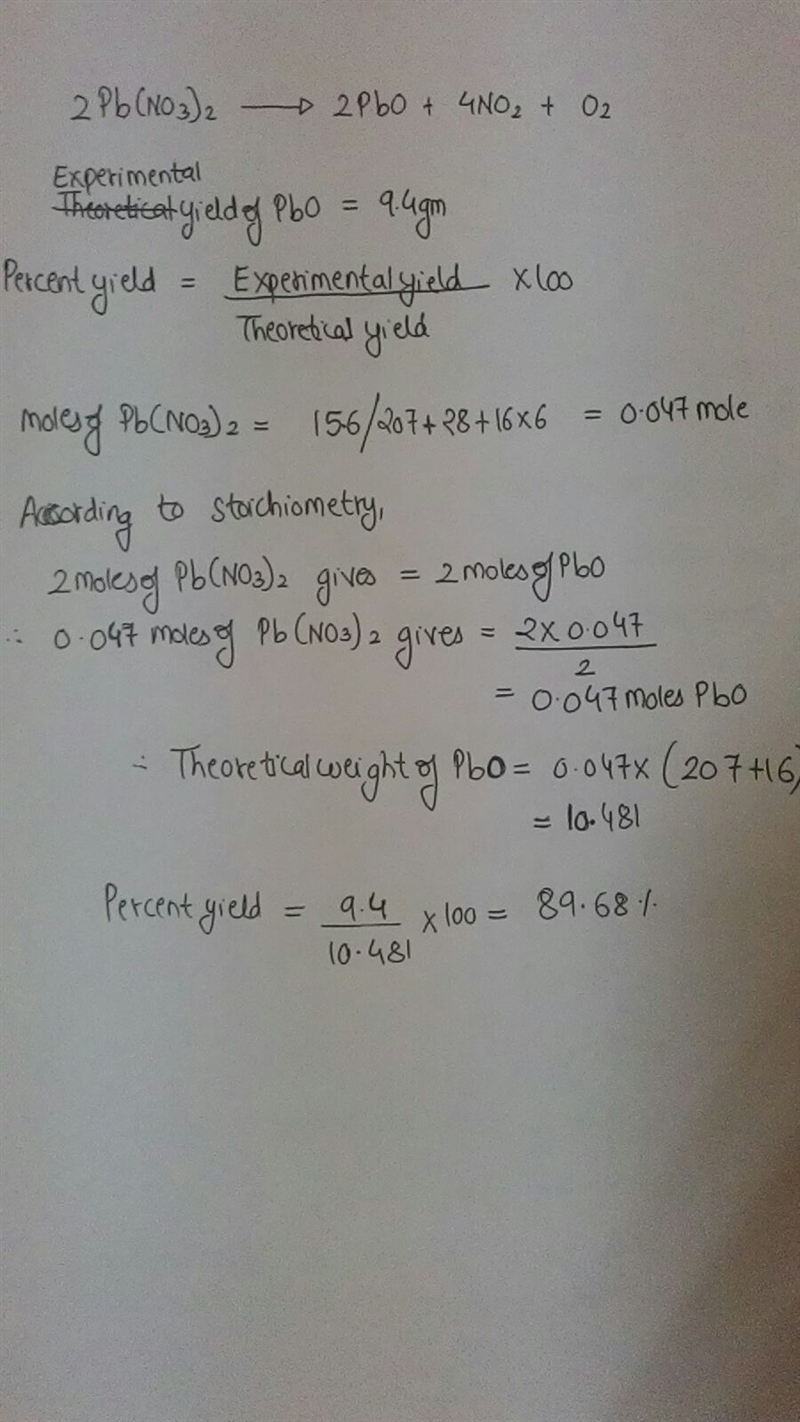 2Pb(NO3)2 → 2PbO + 4NO2 + O2
Experimental
Theoretical yield of PbO = 9.4gm
Percent yield = Experimental yield × 100
Theoretical yield
moles of Pb(NO3)2 = 15.6/207+28+16×6 = 0.047 mole
According to stoichiometry,
2 moles of Pb(NO3)2 gives = 2 moles of PbO
∴ 0.047 moles of Pb(NO3)2 gives = 2×0.047
2
= 0.047 moles PbO
∴ Theoretical weight of PbO = 0.047× (207+16)
= 10.481
Percent yield = 9.4 × 100 = 89.68 %
10.481